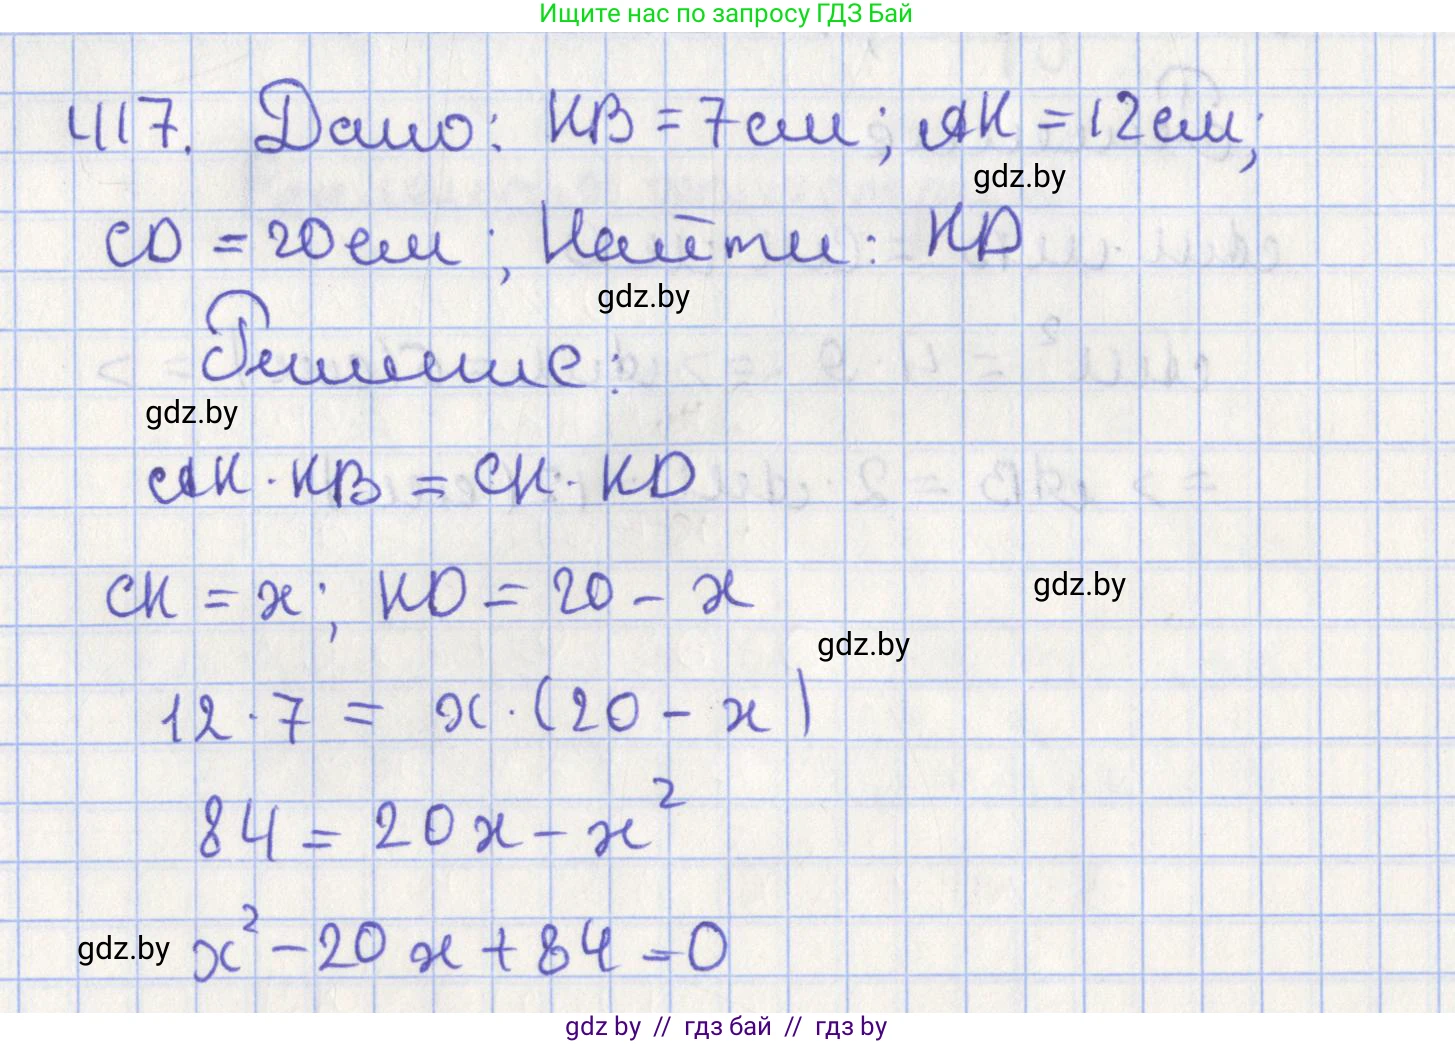 Ищите нас по запросу ГДЗ Бай
417. Дано: KB = 7см; AK = 12см;
gdz.by
CD = 20см; Найти: KD
gdz.by
Решение:
gdz.by
AK · KB = CK · KD
CK = x; KD = 20 - x
gdz.by
gdz.by
12 · 7 = x · (20 - x)
84 = 20x - x²
gdz.by x² - 20x + 84 = 0
gdz by // гдз бай // гдз by